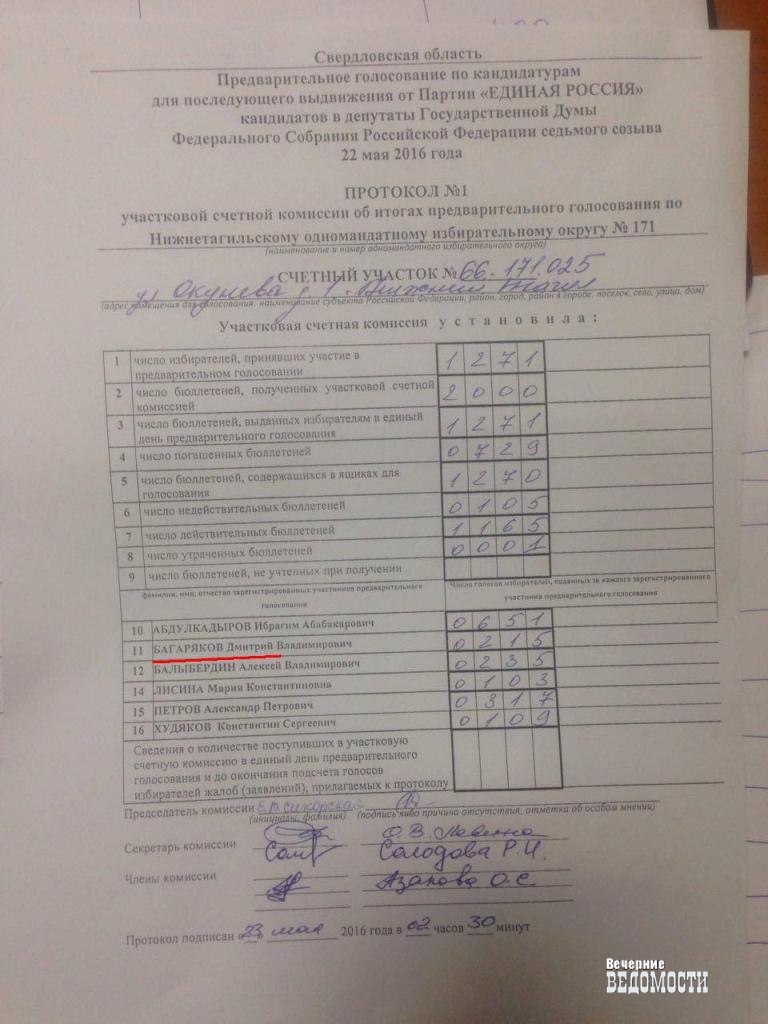 Свердловская область
Предварительное голосование по кандидатурам
для последующего выдвижения от Партии «ЕДИНАЯ РОССИЯ»
кандидатов в депутаты Государственной Думы
Федерального Собрания Российской Федерации седьмого созыва
22 мая 2016 года
ПРОТОКОЛ №1
участковой счетной комиссии об итогах предварительного голосования по
Нижнетагильскому одномандатному избирательному округу № 171
(наименование и номер одномандатного избирательного округа)
СЧЕТНЫЙ УЧАСТОК № 66.171.025
ул Окунева д. 1. Нижний Тагил
(адрес помещения для голосования: наименование субъекта Российской Федерации, район, город, район в городе, поселок, село, улица, дом)
Участковая счетная комиссия установила:
1 число избирателей, принявших участие в
предварительном голосовании 1 2 7 1
2 число бюллетеней, полученных участковой счетной
комиссией 2 0 0 0
3 число бюллетеней, выданных избирателям в единый
день предварительного голосования 1 2 7 1
4 число погашенных бюллетеней 0 7 2 9
5 число бюллетеней, содержащихся в ящиках для
голосования 1 2 7 0
6 число недействительных бюллетеней 0 1 0 5
7 число действительных бюллетеней 1 1 6 5
8 число утраченных бюллетеней 0 0 0 1
9 число бюллетеней, не учтенных при получении
фамилия, имя, отчество зарегистрированных участников предварительного
голосования
Число голосов избирателей, поданных за каждого зарегистрированного
участника предварительного голосования
10 АБДУЛКАДЫРОВ Ибрагим Абабакарович 0 6 5 1
11 БАГАРЯКОВ Дмитрий Владимирович 0 2 1 5
12 БАЛЫБЕРДИН Алексей Владимирович 0 2 3 5
14 ЛИСИНА Мария Константиновна 0 1 0 3
15 ПЕТРОВ Александр Петрович 0 3 1 7
16 ХУДЯКОВ Константин Сергеевич 0 1 0 9
Сведения о количестве поступивших в участковую
счетную комиссию в единый день предварительного
голосования и до окончания подсчета голосов
избирателей жалоб (заявлений), прилагаемых к протоколу
Председатель комиссии Сикорская
(инициалы, фамилия) (подпись либо причина отсутствия, отметка об особом мнении)
Секретарь комиссии О.В.
Солодова Р.И.
Члены комиссии
Азанова О.С.
Протокол подписан «23» мая 2016 года в 02 часов 30 минут
Вечерние
ВЕДОМОСТИ